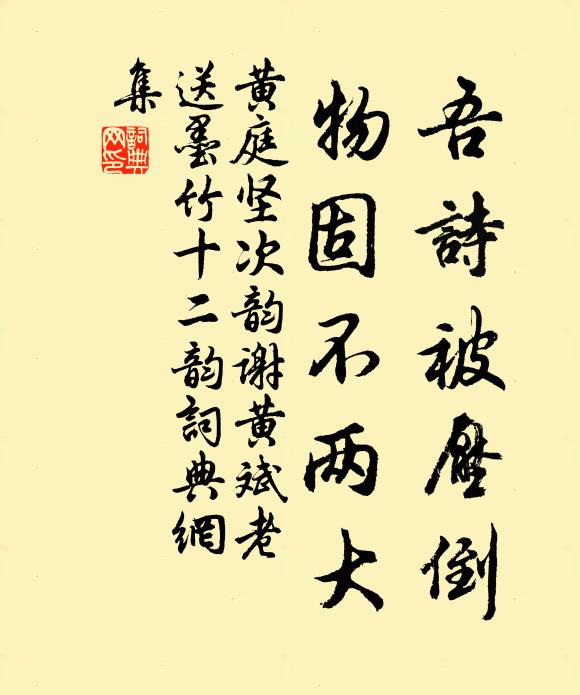 吾詩被壓倒
物固不两大
黄庭坚次韵謝黄斌老
送墨竹十二韵詞典網
集
詞典網印